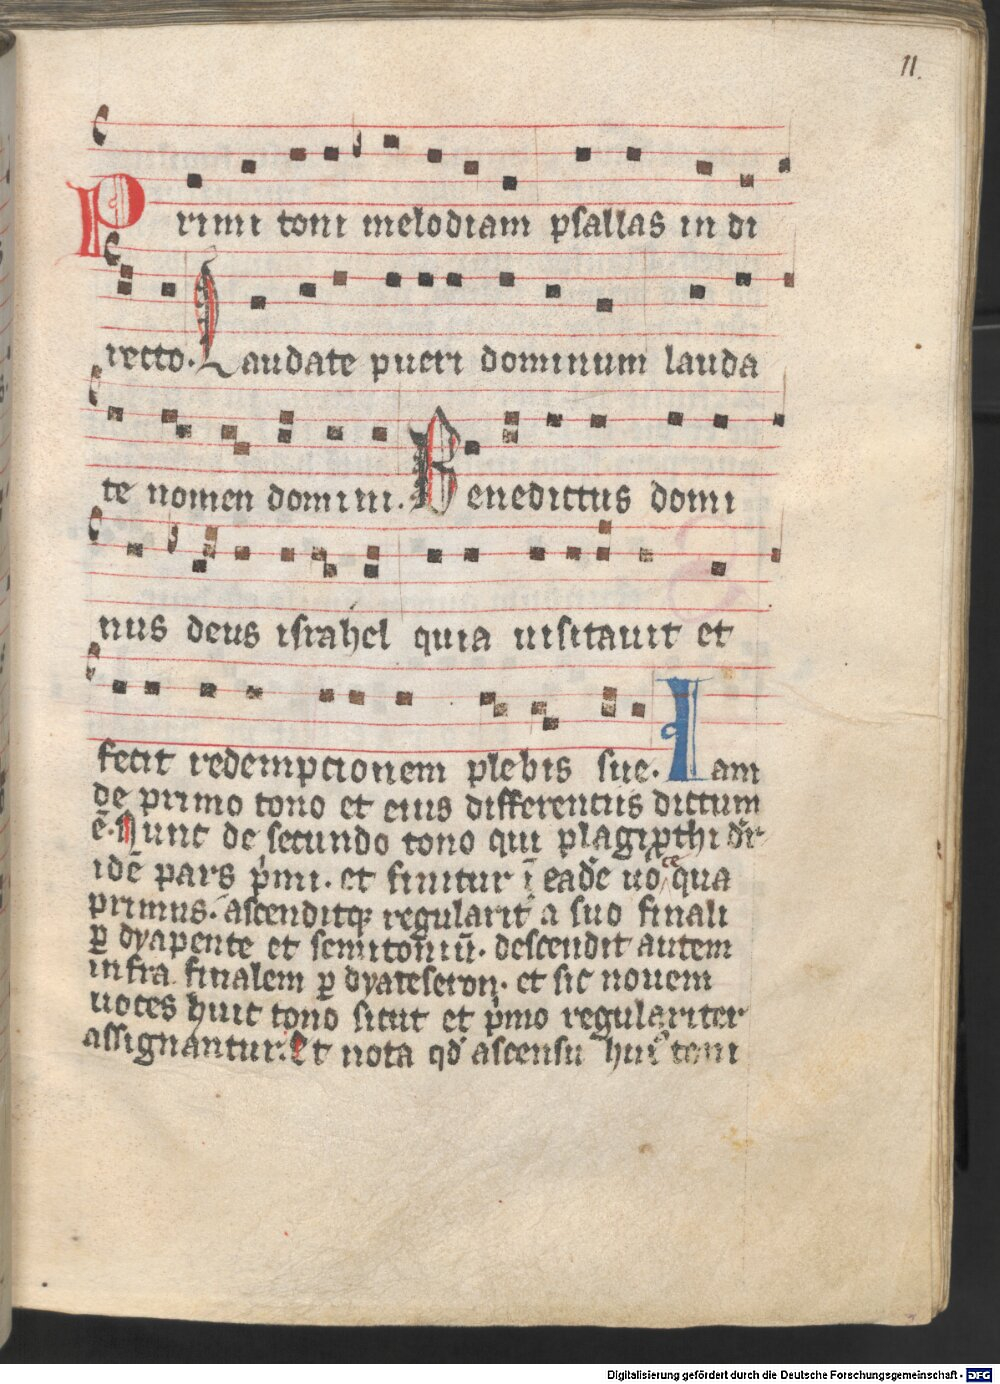 11.
Primi toni melodiam psallas in di
recto. Laudate pueri dominum lauda
te nomen domini. Benedictus domi
nus deus israhel quia uisitauit et
fecit redempcionem plebis sue. Iam
de primo tono et eius differentiis dictum
ē. Nunt de secundo tono qui plagi ꝓthi dr̄
idē pars p̄mi. et finitur ī eadē uō qua
primus. ascenditqꝫ regularit̄ a suo finali
ꝑ dyapente et semitoniū. descendit autem
infra finalem ꝑ dyateseron. et sic nouem
uoces huic tono sicut et p̄mo regulariter
assignantur. Et nota qd̄ ascensu huiꝰ toni
Digitalisierung gefördert durch die Deutsche Forschungsgemeinschaft - DFG